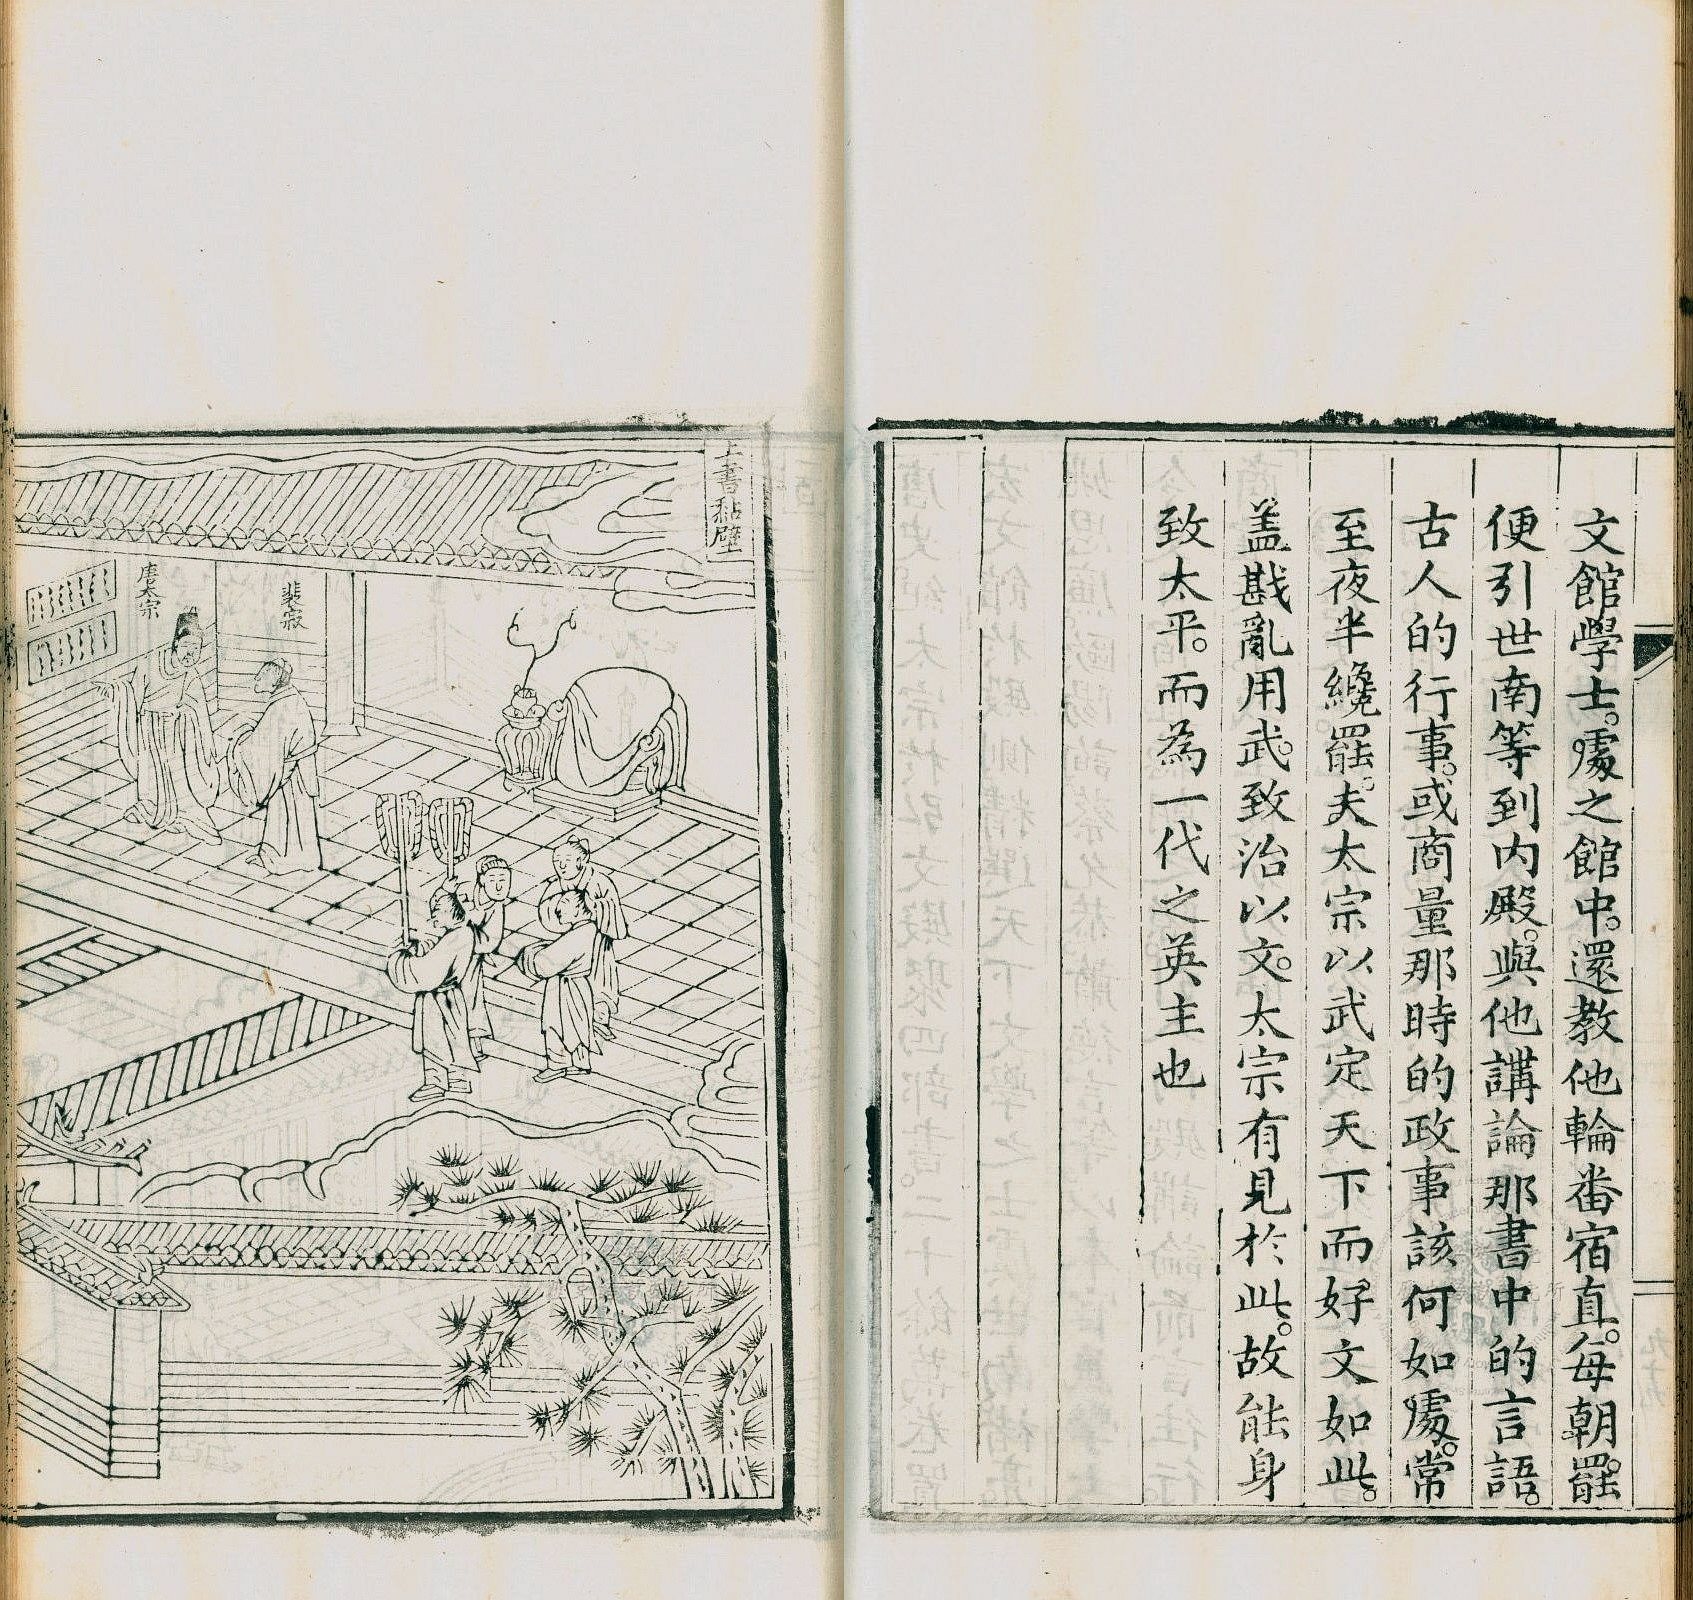 文館學士。處之館中。還教他輪番宿直。每朝罷。
便引世南等到内殿。與他講論那書中的言語。
古人的行事。或商量那時的政事該何如處。常
至夜半纔罷。夫太宗以武定天下而好文如此。
盖戡亂用武。致治以文。太宗有見於此。故能身
致太平。而為一代之英主也
上書黏壁
裴寂
唐太宗